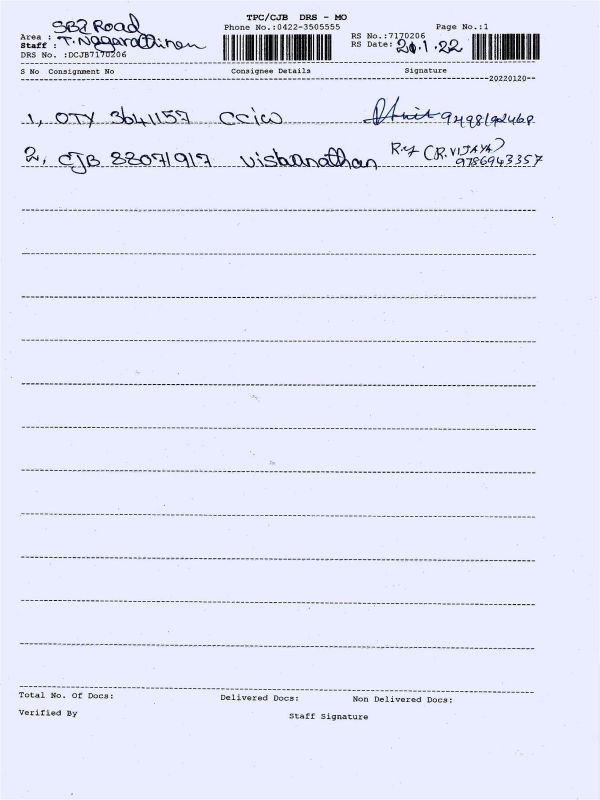 TPC/CJB DRS - MO
SBI Road
Phone No.:0422-3505555
Page No.:1
Area :
Staff : T. Nagarathinam
RS No.:7170206
RS Date: 20.1.22
DRS No. :DCJB7170206
S No Consignment No Consignee Details Signature
--20220120--
1, OTY 3641157 CCIW
2, CJB 88071917 Viswanathan (R.VIJAYA)
9786943357
Total No. Of Docs: Delivered Docs: Non Delivered Docs:
Verified By Staff Signature